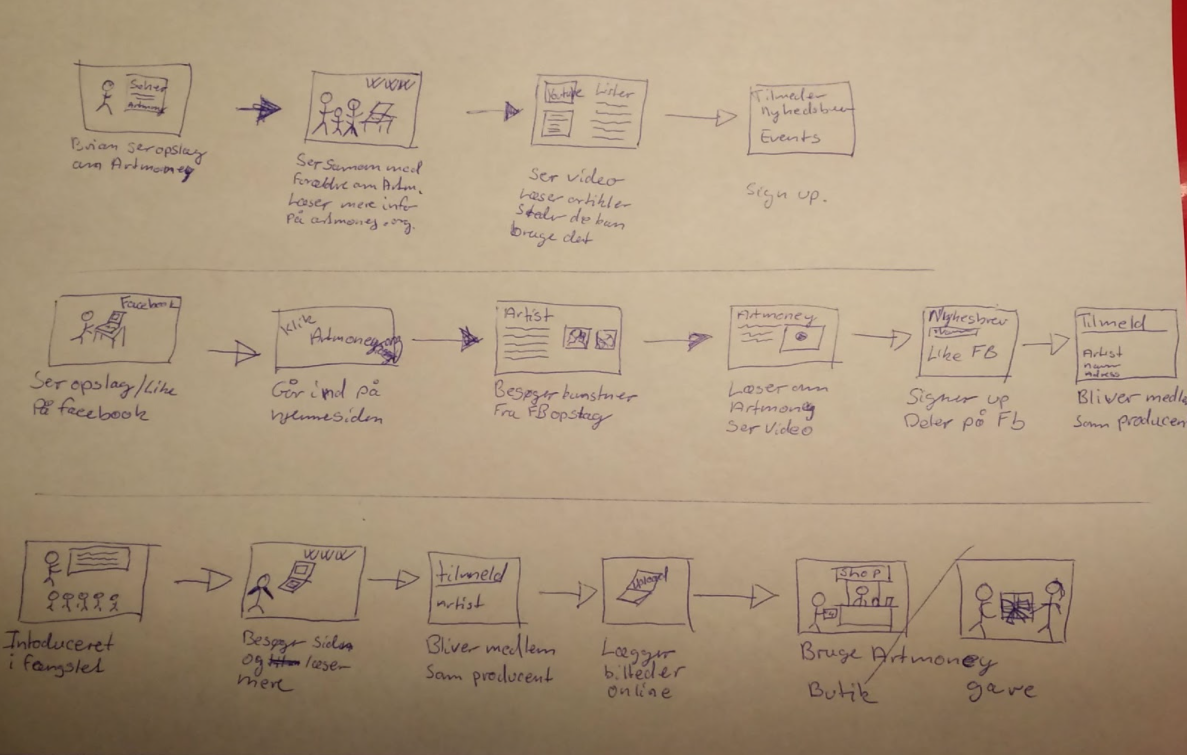 Artmoney
Brian ser opslag
om Artmoney
WWW
Ser Sammom med
Forældre om Artm.
Læser mere info
På artmoney.org.
Youtube
Lister
Ser video
Læser artikler
Steder de kan
bruge det
Tilmeder
nyhedsbrev
Events
Sign up.
Facebook
Ser opslag/Like
På facebook
Klik
Artmoney.org
Går ind på
hjemmesiden
Artist
Besøger kunstner
Fra FB opslag
Artmoney
Læser om
Artmoney
Ser Video
Nyhesbrev
Like FB
Signer up
Deler på Fb
Tilmeld
Artist
Navn
Adress
Bliver medle
Som producen
Intoduceret
i fængslet
WWW
Besøger siden
og læser
mere
tilmeld
Artist
Bliver medlem
Som producent
upload
Lægger
billeder
online
Shop
Bruge Artmoney
Butik
gave